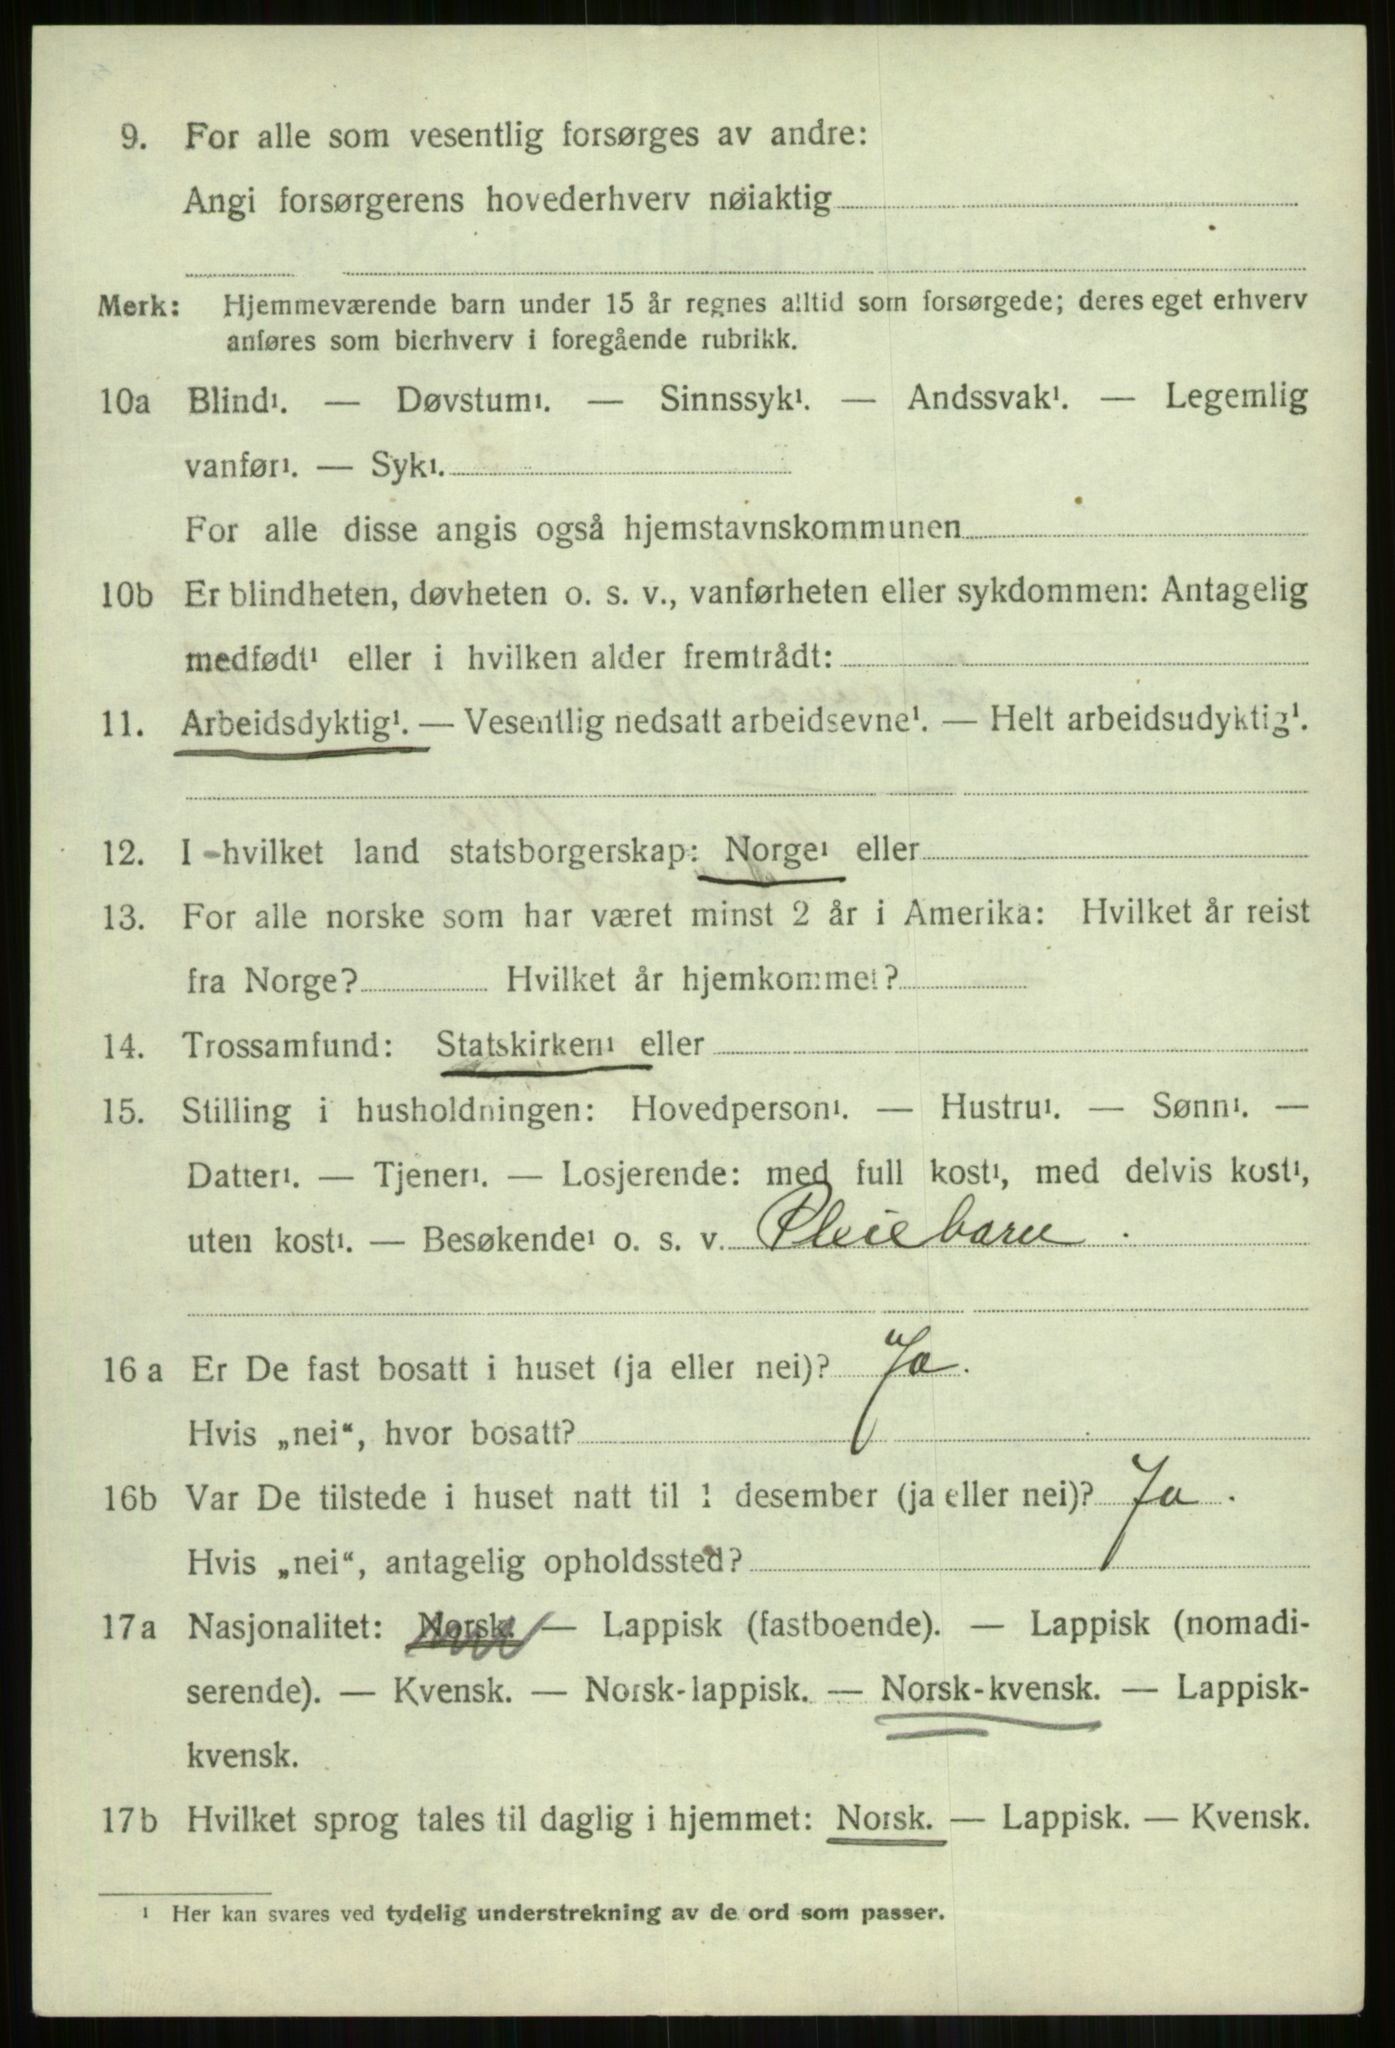 9. For alle som vesentlig forsørges av andre:
Angi forsørgerens hovederhverv nøiaktig
Merk: Hjemmeværende barn under 15 år regnes alltid som forsørgede; deres eget erhverv
anføres som bierhverv i foregående rubrikk.
10a Blind¹. — Døvstum¹. — Sinnssyk¹. — Andssvak¹. — Legemlig
vanfør¹. — Syk¹.
For alle disse angis også hjemstavnskommunen
10b Er blindheten, døvheten o. s. v., vanførheten eller sykdommen: Antagelig
medfødt¹ eller i hvilken alder fremtrådt:
11. Arbeidsdyktig¹. — Vesentlig nedsatt arbeidsevne¹. — Helt arbeidsudyktig¹.
12. I hvilket land statsborgerskap: Norge¹ eller
13. For alle norske som har været minst 2 år i Amerika: Hvilket år reist
fra Norge? Hvilket år hjemkommet?
14. Trossamfund: Statskirken¹ eller
15. Stilling i husholdningen: Hovedperson¹. — Hustru¹. — Sønn¹. —
Datter¹. — Tjener¹. — Losjerende: med full kost¹, med delvis kost¹,
uten kost¹. — Besøkende¹ o. s. v. Pleiebarn.
16a Er De fast bosatt i huset (ja eller nei)? Ja.
Hvis „nei“, hvor bosatt?
16b Var De tilstede i huset natt til 1 desember (ja eller nei)? Ja.
Hvis „nei“, antagelig opholdssted?
17a Nasjonalitet: Norsk. — Lappisk (fastboende). — Lappisk (nomadi-
serende). — Kvensk. — Norsk-lappisk. — Norsk-kvensk. — Lappisk-
kvensk.
17b Hvilket sprog tales til daglig i hjemmet: Norsk. — Lappisk. — Kvensk.
¹ Her kan svares ved tydelig understrekning av de ord som passer.